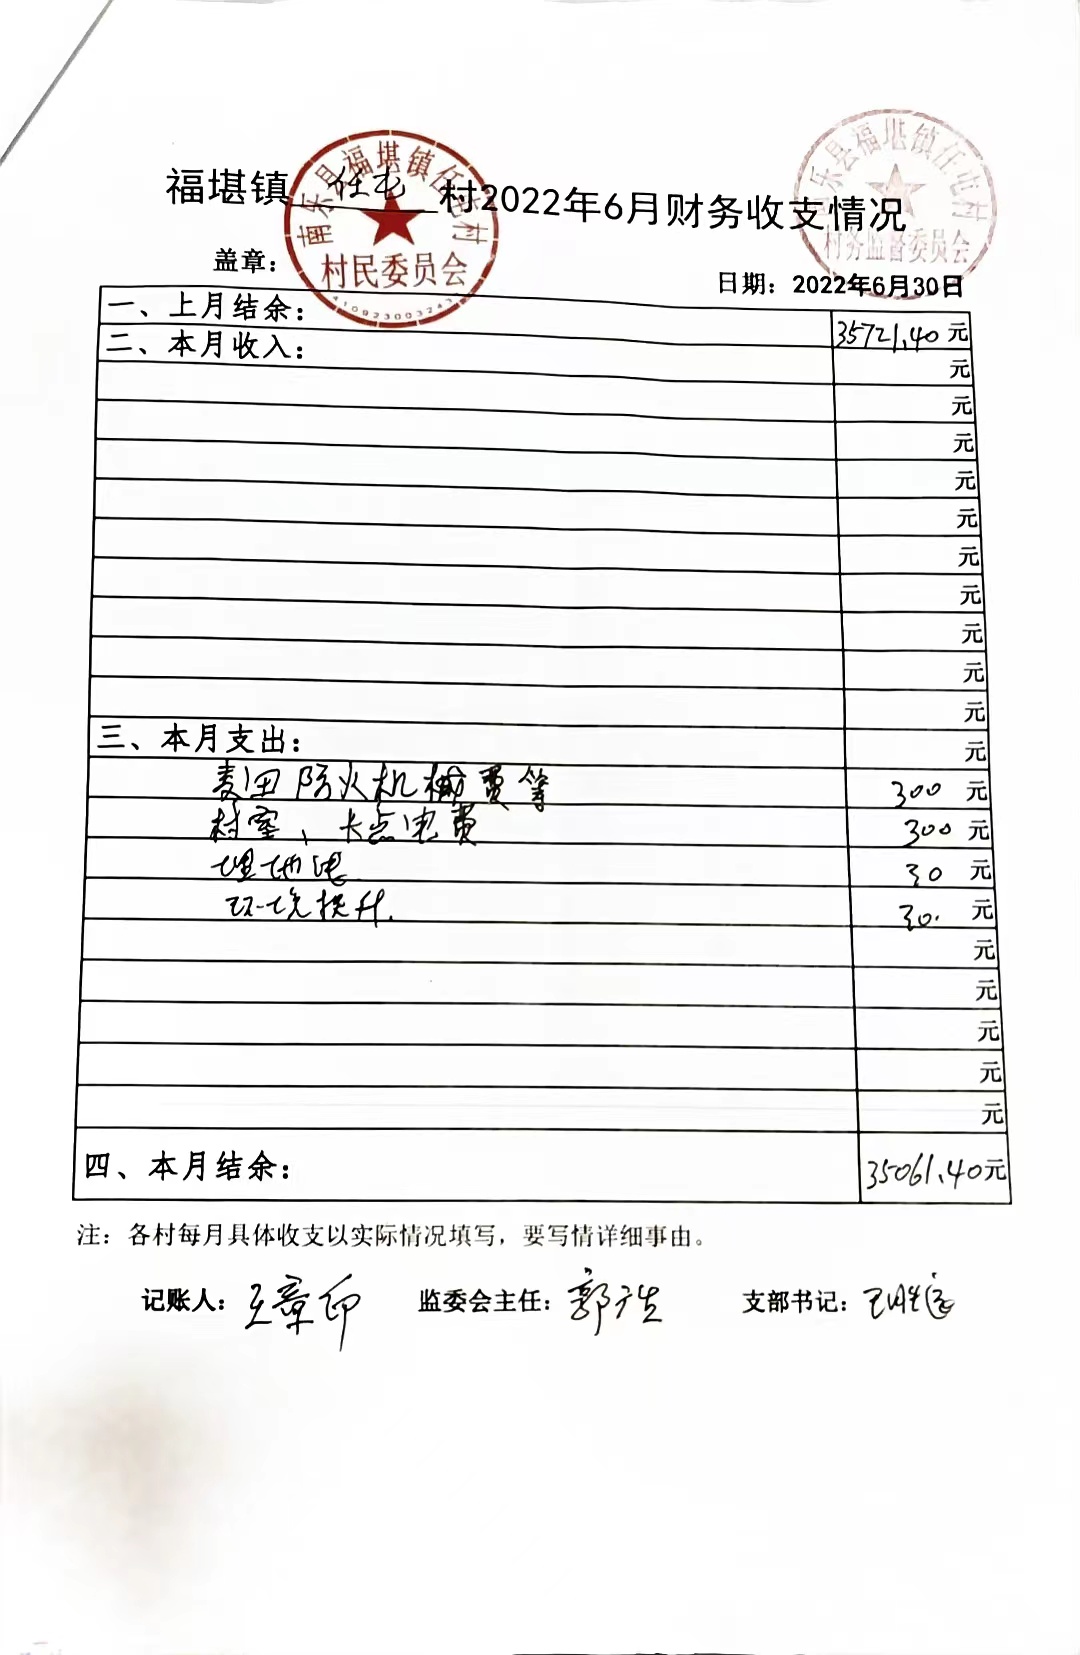 福堪镇 任屯 村2022年6月财务收支情况
南乐县福堪镇任屯村
村民委员会
4109230032434
南乐县福堪镇任屯村
村务监督委员会
盖章：
日期：2022年6月30日
一、上月结余： 35721.40元
二、本月收入： 元
元
元
元
元
元
元
元
元
元
三、本月支出： 元
麦田防火机械费等 300 元
村室、卡点电费 300 元
埋地 30 元
环境提升. 30. 元
元
元
元
元
元
四、本月结余： 35061.40元
注：各村每月具体收支以实际情况填写，要写情详细事由。
记账人：王章印 监委会主任：郭广生 支部书记：